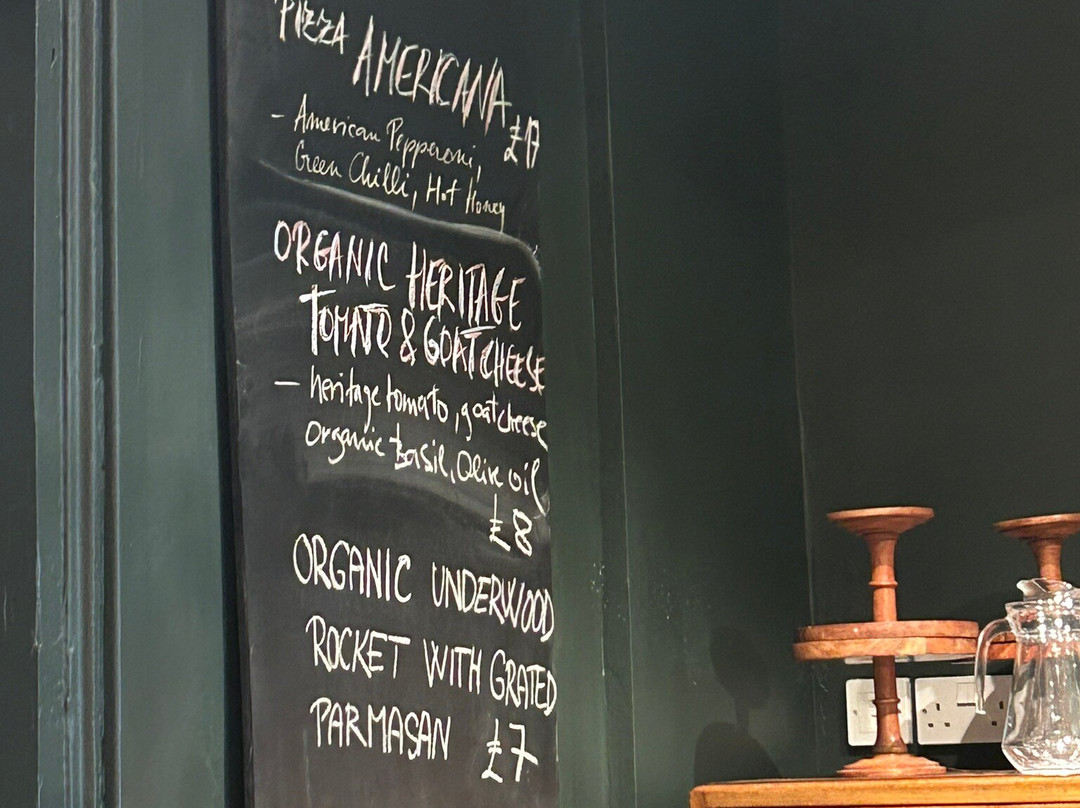 PIZZA AMERICANA
£17
- American Pepperoni,
Green Chilli, Hot Honey
ORGANIC HERITAGE
TOMATO & GOAT CHEESE
- heritage tomato, goat cheese
organic basil, olive oil
£8
ORGANIC UNDERWOOD
ROCKET WITH GRATED
PARMASAN £7